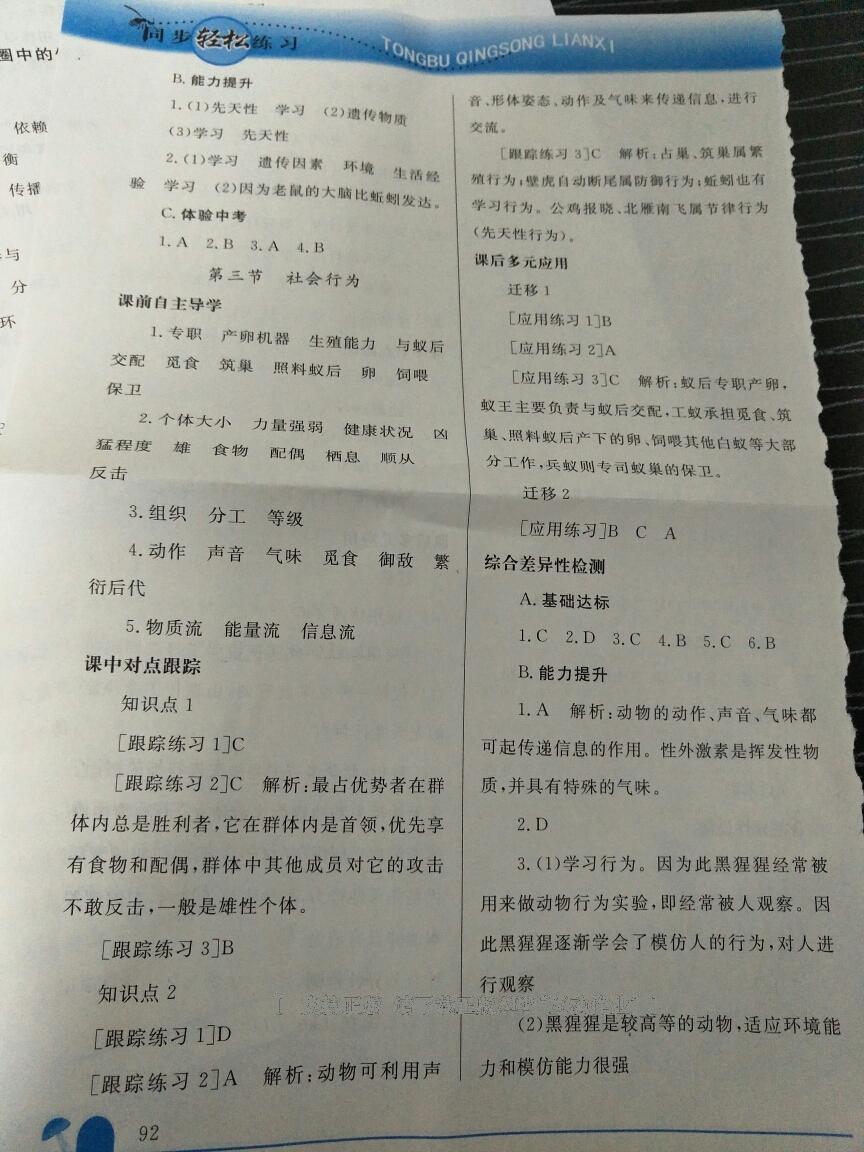 圈中的
依赖
衡
传播
与
分
环
同步轻松练习
TONGBU QINGSONG LIANXI
B.能力提升
1.(1)先天性 学习 (2)遗传物质
(3)学习 先天性
2.(1)学习 遗传因素 环境 生活经
验 学习 (2)因为老鼠的大脑比蚯蚓发达。
C.体验中考
1.A 2.B 3.A 4.B
第三节 社会行为
课前自主导学
1.专职 产卵机器 生殖能力 与蚁后
交配 觅食 筑巢 照料蚁后 卵 饲喂
保卫
2.个体大小 力量强弱 健康状况 凶
猛程度 雄 食物 配偶 栖息 顺从
反击
3.组织 分工 等级
4.动作 声音 气味 觅食 御敌 繁
衍后代
5.物质流 能量流 信息流
课中对点跟踪
知识点1
[跟踪练习1]C
[跟踪练习2]C 解析:最占优势者在群
体内总是胜利者,它在群体内是首领,优先享
有食物和配偶,群体中其他成员对它的攻击
不敢反击,一般是雄性个体。
[跟踪练习3]B
知识点2
[跟踪练习1]D
[跟踪练习2]A 解析:动物可利用声
音、形体姿态、动作及气味来传递信息,进行
交流。
[跟踪练习3]C 解析:占巢、筑巢属繁
殖行为;壁虎自动断尾属防御行为;蚯蚓也有
学习行为。公鸡报晓、北雁南飞属节律行为
(先天性行为)。
课后多元应用
迁移1
[应用练习1]B
[应用练习2]A
[应用练习3]C 解析:蚁后专职产卵,
蚁王主要负责与蚁后交配,工蚁承担觅食、筑
巢、照料蚁后产下的卵、饲喂其他白蚁等大部
分工作,兵蚁则专司蚁巢的保卫。
迁移2
[应用练习]B C A
综合差异性检测
A.基础达标
1.C 2.D 3.C 4.B 5.C 6.B
B.能力提升
1.A 解析:动物的动作、声音、气味都
可起传递信息的作用。性外激素是挥发性物
质,并具有特殊的气味。
2.D
3.(1)学习行为。因为此黑猩猩经常被
用来做动物行为实验,即经常被人观察。因
此黑猩猩逐渐学会了模仿人的行为,对人进
行观察
(2)黑猩猩是较高等的动物,适应环境能
力和模仿能力很强
92